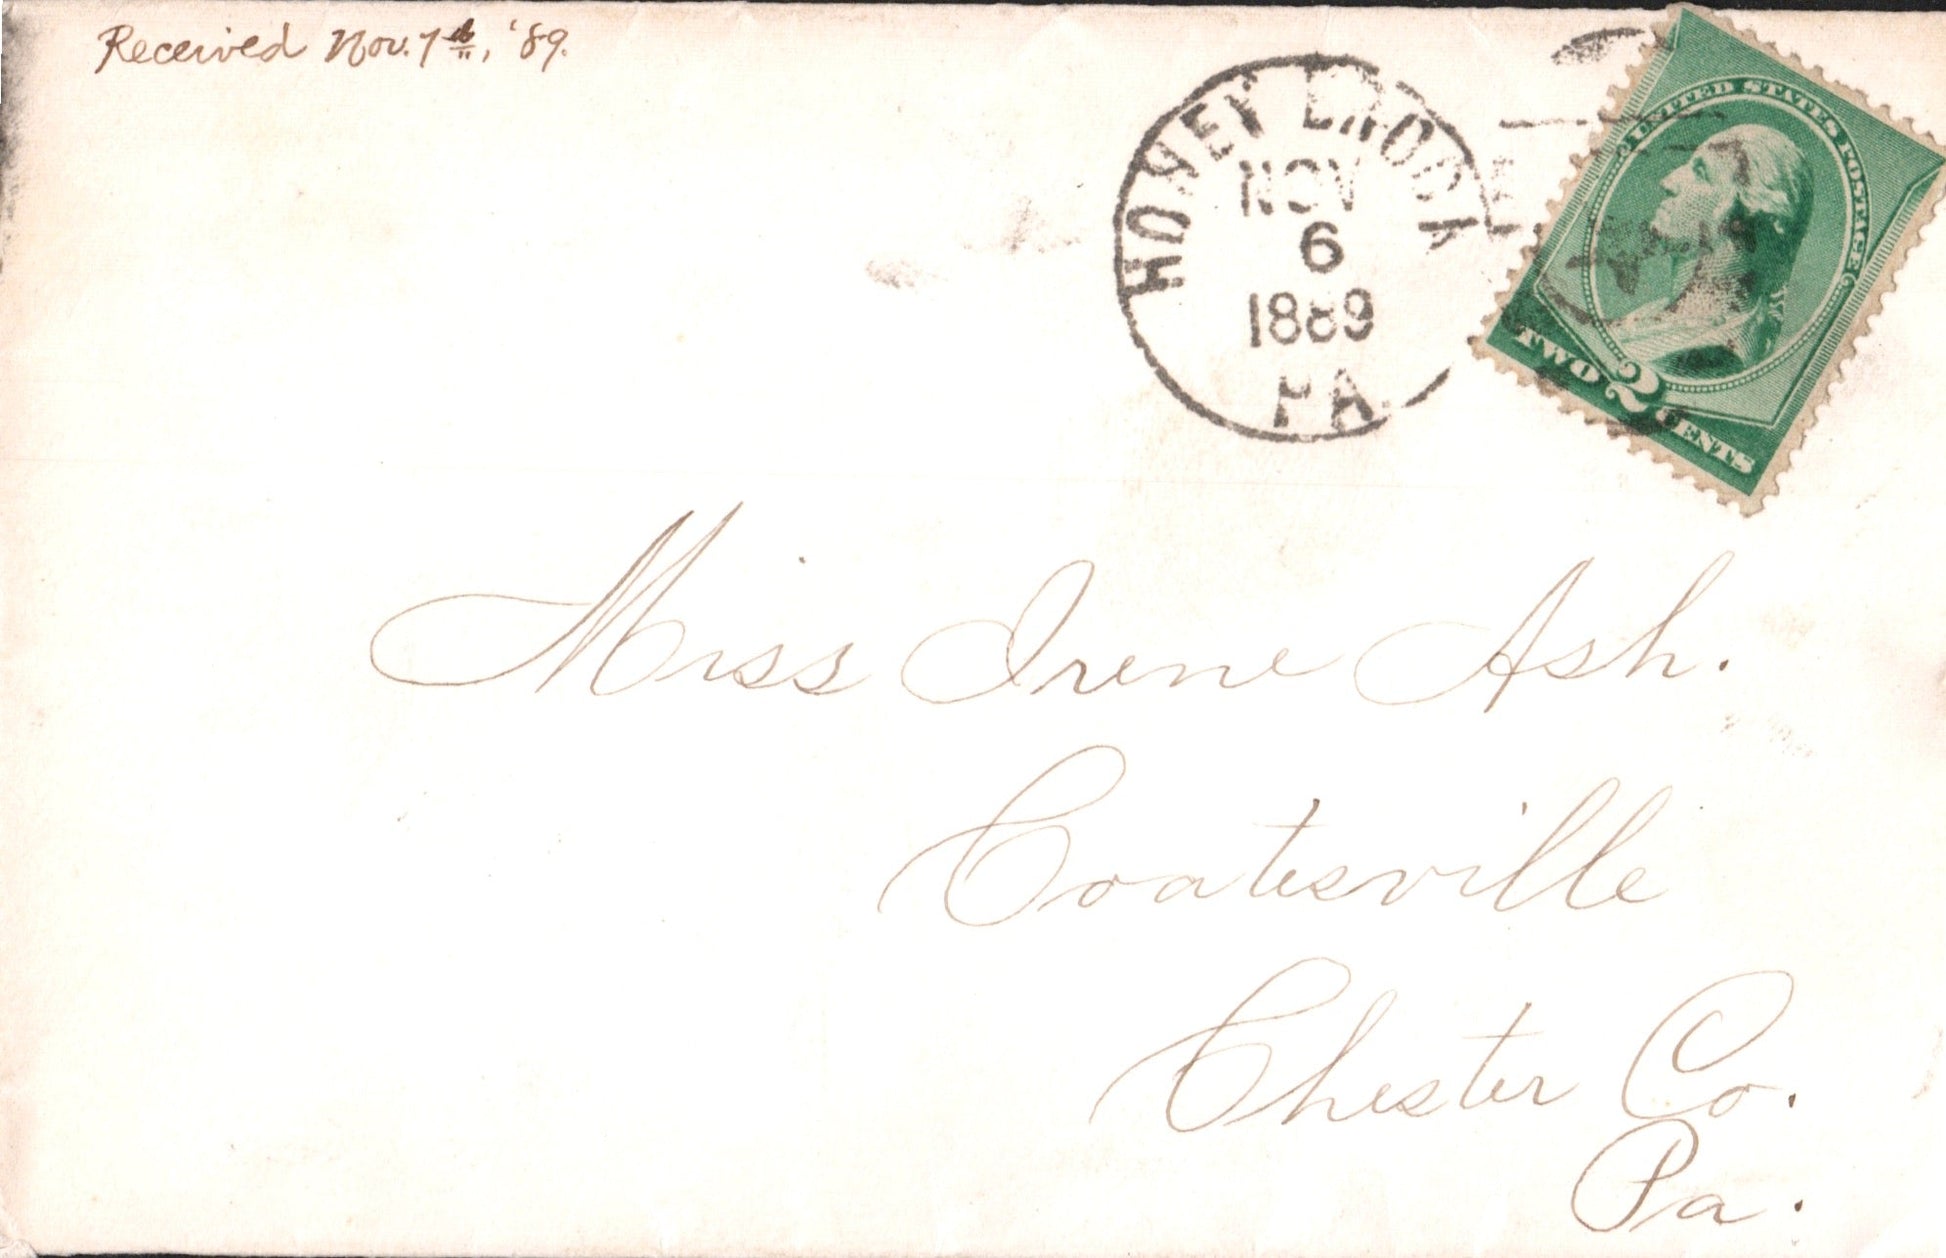 Received Nov. 7th, '89.
HONEY BROOK
NOV
6
1889
PA.
UNITED STATES POSTAGE
TWO 2 CENTS
Miss Irene Ash.
Coatesville
Chester Co.
Pa.